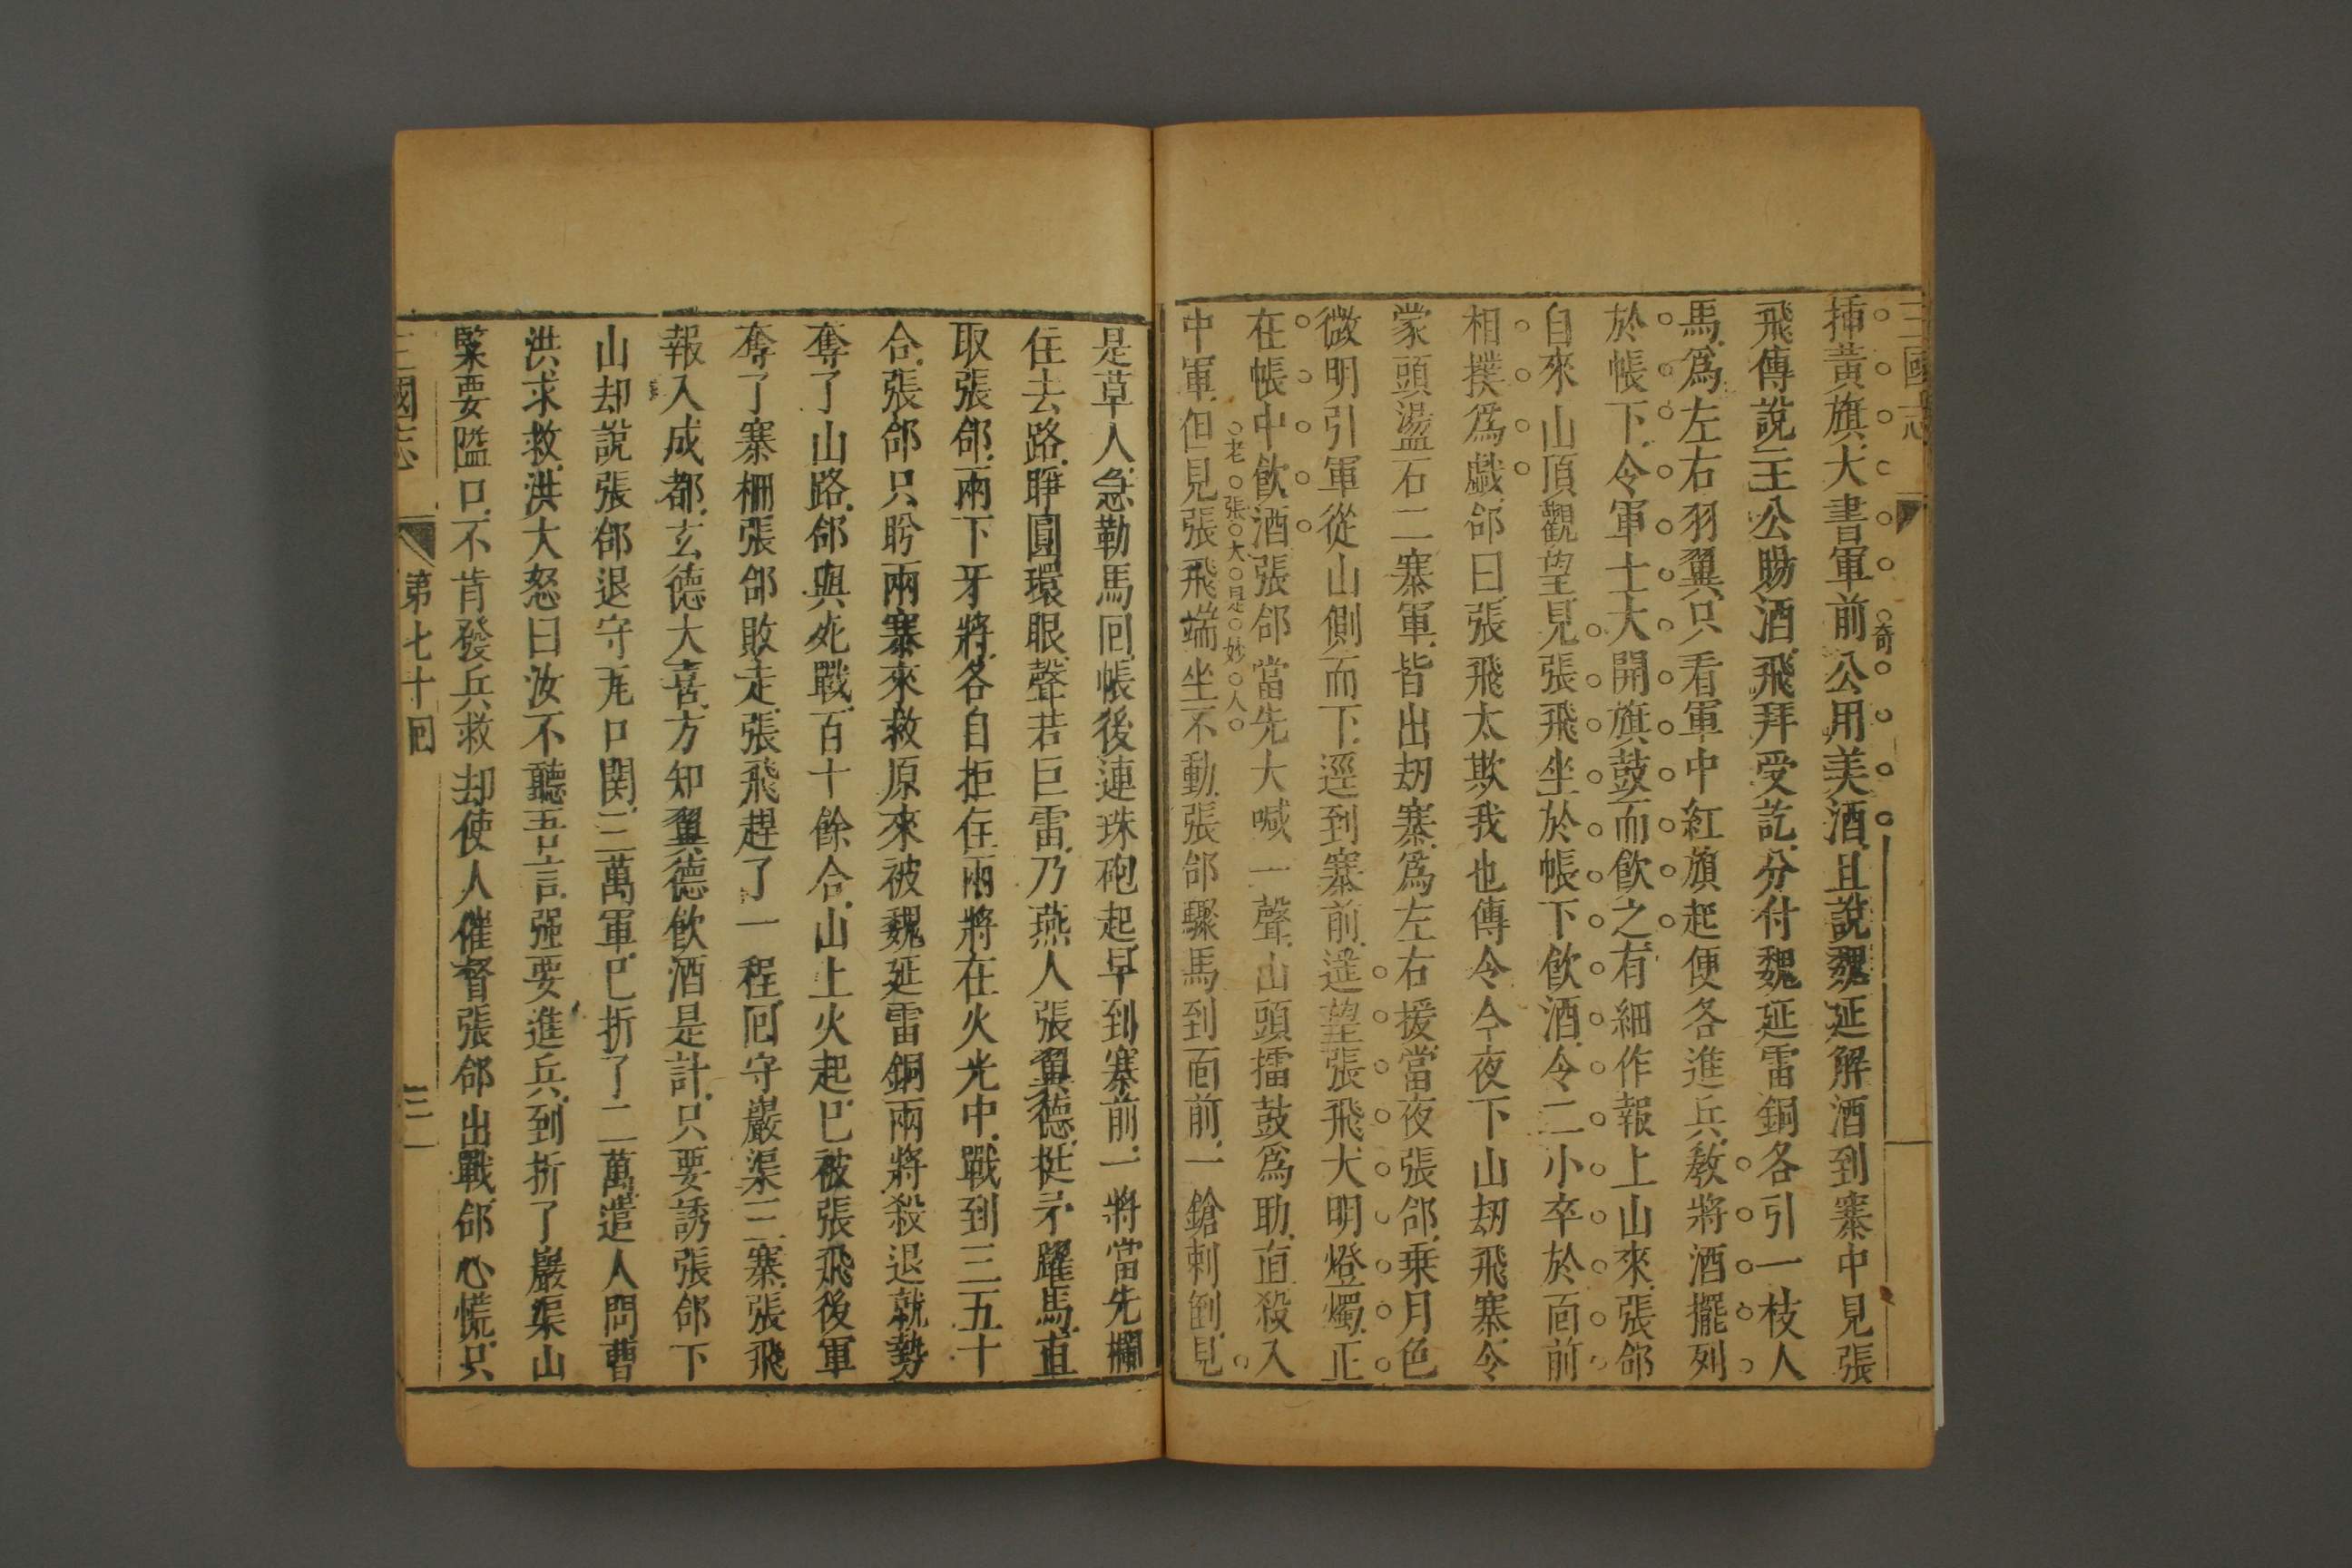 三國志
挿黃旗大書軍前公用美酒且說魏延解酒到寨中見張
奇
飛傳說主公賜酒飛拜受訖分付魏延雷銅各引一枝人
馬爲左右羽翼只看軍中紅旗起便各進兵敎將酒擺列
於帳下令軍士大開旗鼓而飮之有細作報上山來張郃
自來山頂觀望見張飛坐於帳下飮酒令二小卒於面前
相撲爲戲郃曰張飛太欺我也傳令今夜下山刼飛寨令
蒙頭盪石二寨軍皆出刼寨爲左右援當夜張郃乗月色
微明引軍從山側而下逕到寨前遥望張飛大明燈燭正
在帳中飮酒張郃當先大喊一聲山頭擂鼓爲助直殺入
老張大是妙人
中軍但見張飛端坐不動張郃驟馬到面前一鎗刺倒見
是草人急勒馬囘帳後連珠砲起早到寨前一將當先欄
住去路睜圓環眼聲若巨雷乃燕人張翼德挺矛躍馬直
取張郃兩下牙將各自拒住兩將在火光中戰到三五十
合張郃只盼兩寨來救原來被魏延雷銅兩將殺退就勢
奪了山路郃與死戰百十餘合山上火起已被張飛後軍
奪了寨柵張郃敗走張飛趕了一程囘守巖渠三寨張飛
報入成都玄德大喜方知翼德飮酒是計只要誘張郃下
山却說張郃退守瓦口関三萬軍已折了二萬遣人問曹
洪求救洪大怒曰汝不聽吾言强要進兵到折了巖渠山
緊要隘口不肯發兵救却使人催督張郃出戰郃心慌只
三國志 第七十囘 三